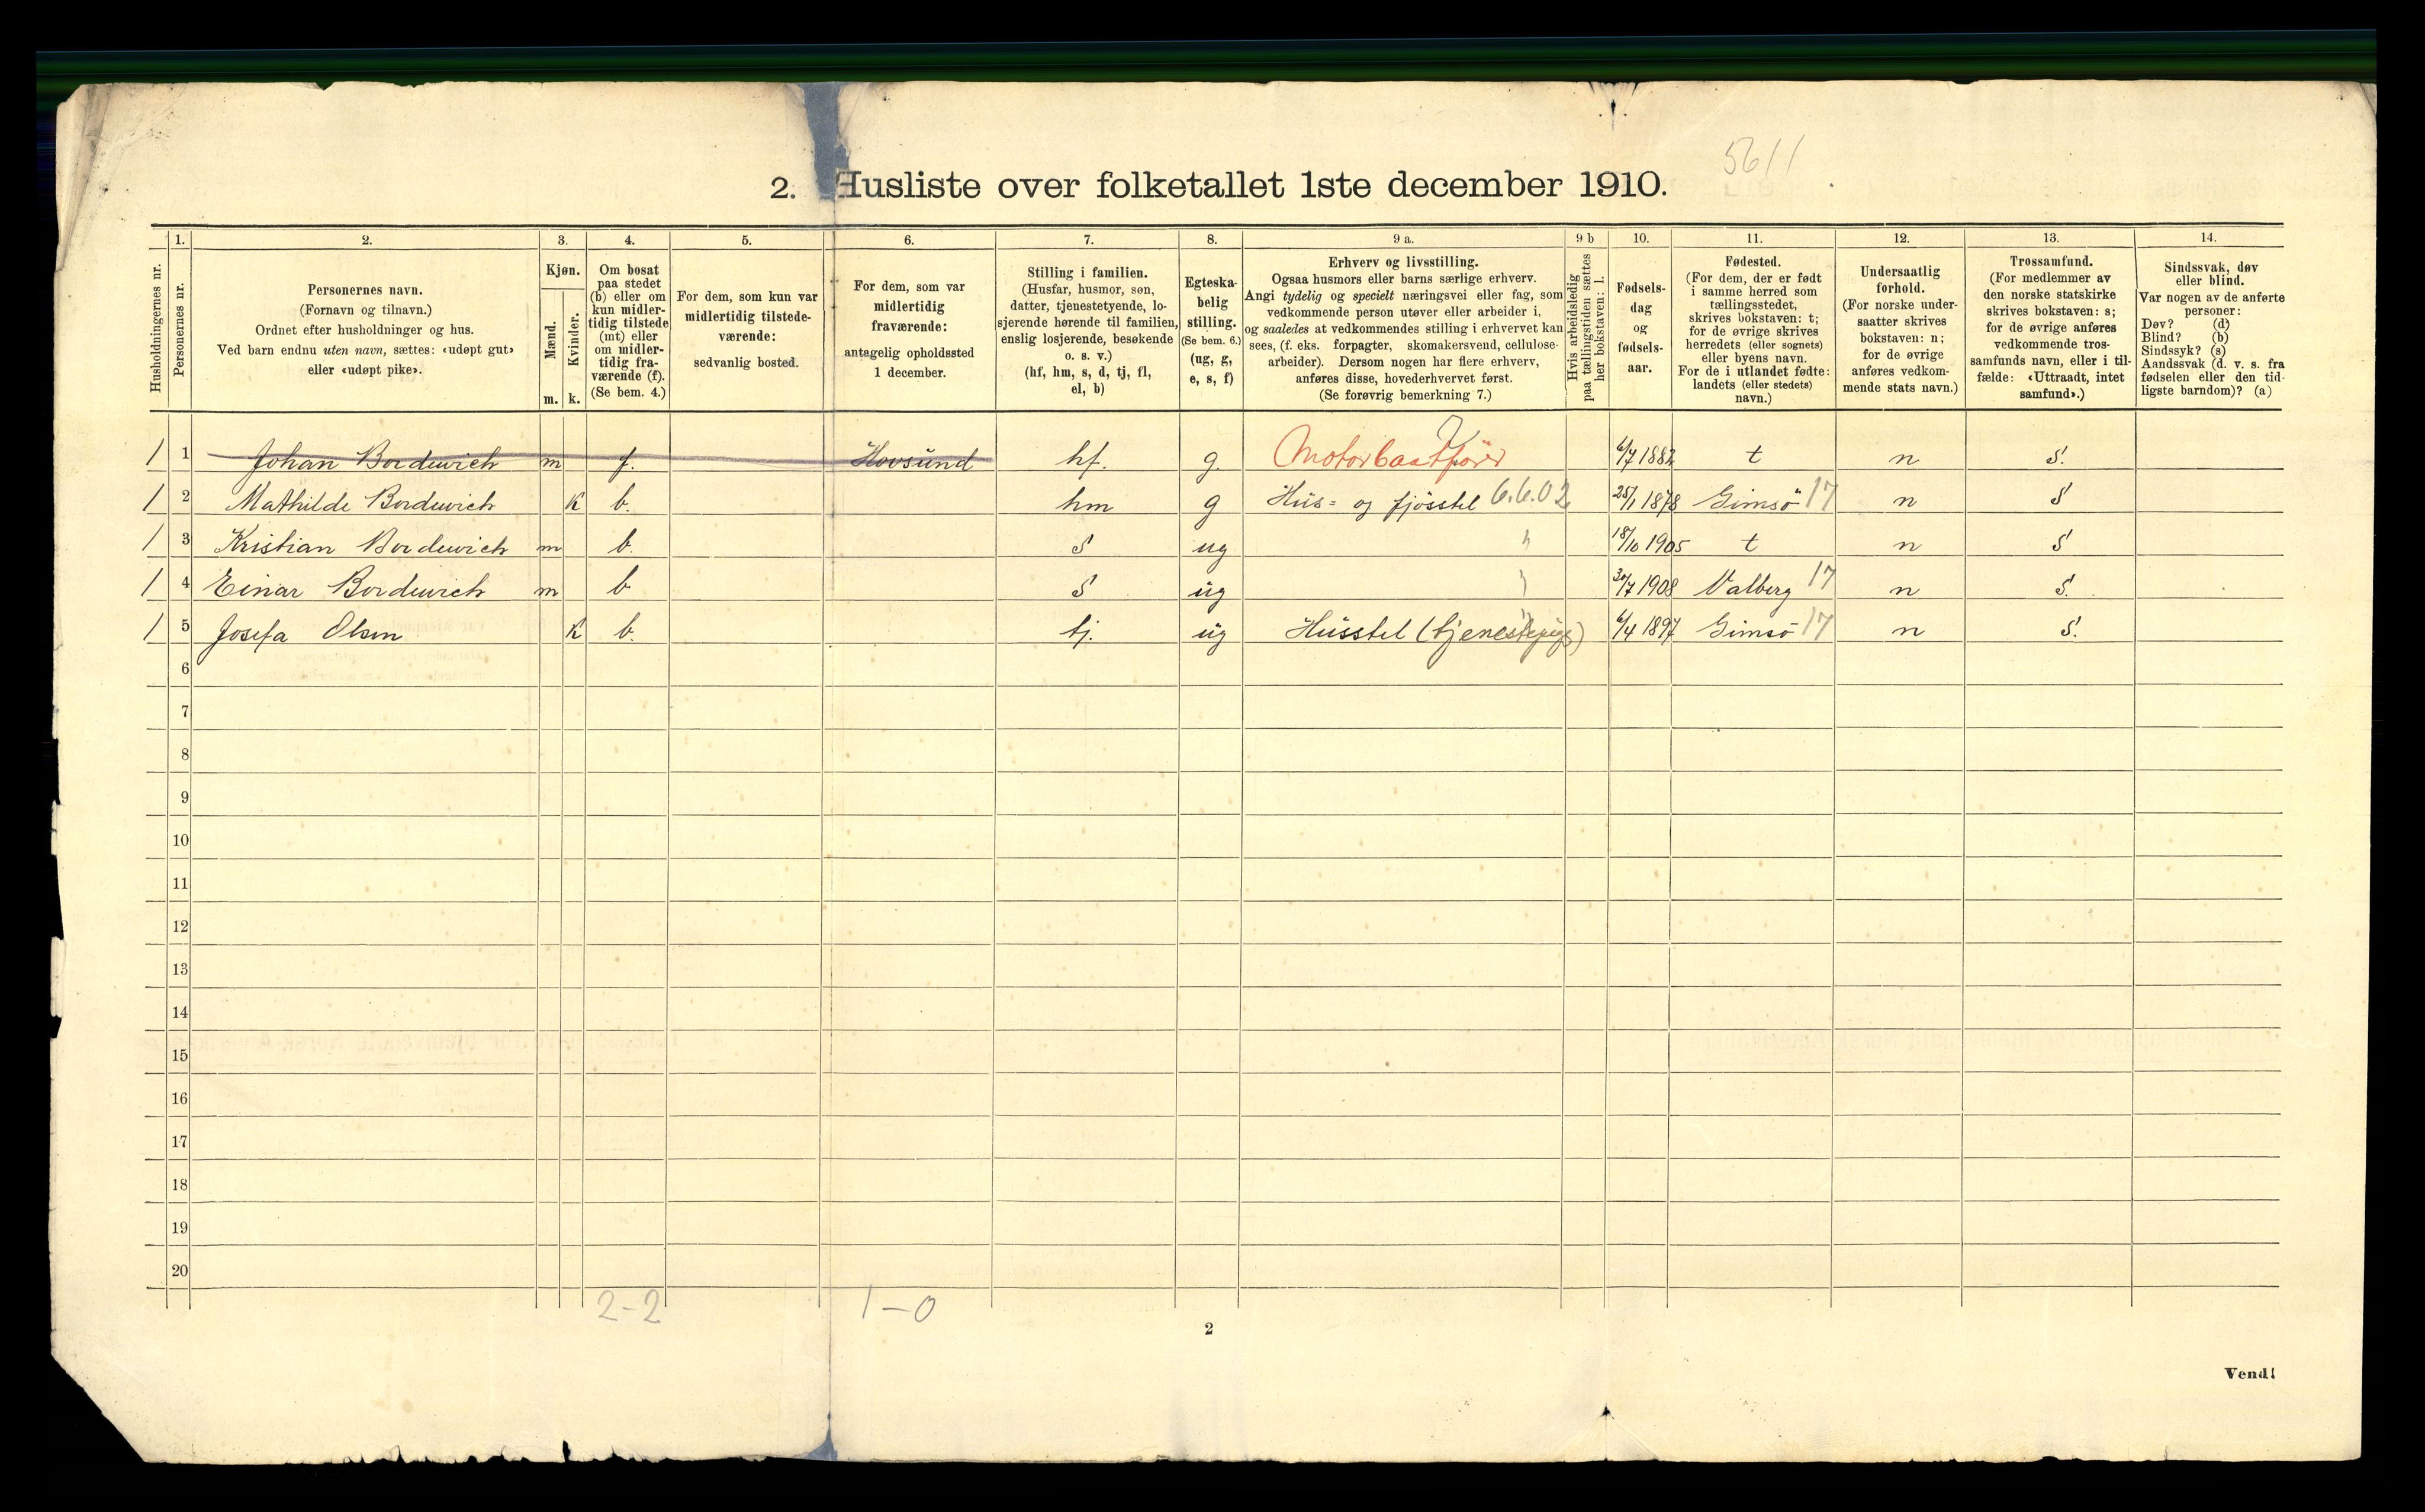 5611
2. Husliste over folketallet 1ste december 1910.
Husholdningernes nr.
1.
Personernes nr.
2.
Personernes navn.
(Fornavn og tilnavn.)
Ordnet efter husholdninger og hus.
Ved barn endnu uten navn, sættes: «udøpt gut»
eller «udøpt pike».
3.
Kjøn.
Mænd.
Kvinder.
m. k.
4.
Om bosat
paa stedet
(b) eller om
kun midler-
tidig tilstede
(mt) eller
om midler-
tidig fra-
værende (f).
(Se bem. 4.)
5.
For dem, som kun var
midlertidig tilstede-
værende:
sedvanlig bosted.
6.
For dem, som var
midlertidig
fraværende:
antagelig opholdssted
1 december.
7.
Stilling i familien.
(Husfar, husmor, søn,
datter, tjenestetyende, lo-
sjerende hørende til familien,
enslig losjerende, besøkende
o. s. v.)
(hf, hm, s, d, tj, fl,
el, b)
8.
Egteska-
belig
stilling.
(Se bem. 6.)
(ug, g,
e, s, f)
9 a.
Erhverv og livsstilling.
Ogsaa husmors eller barns særlige erhverv.
Angi tydelig og specielt næringsvei eller fag, som
vedkommende person utøver eller arbeider i,
og saaledes at vedkommendes stilling i erhvervet kan
sees, (f. eks. forpagter, skomakersvend, cellulose-
arbeider). Dersom nogen har flere erhverv,
anføres disse, hovederhvervet først.
(Se forøvrig bemerkning 7.)
9 b
Hvis arbeidsledig
paa tællingstiden sættes
her bokstaven: l.
10.
Fødsels-
dag
og
fødsels-
aar.
11.
Fødested.
(For dem, der er født
i samme herred som
tællingsstedet,
skrives bokstaven: t;
for de øvrige skrives
herredets (eller sognets)
eller byens navn.
For de i utlandet fødte:
landets (eller stedets)
navn.)
12.
Undersaatlig
forhold.
(For norske under-
saatter skrives
bokstaven: n;
for de øvrige
anføres vedkom-
mende stats navn.)
13.
Trossamfund.
(For medlemmer av
den norske statskirke
skrives bokstaven: s;
for de øvrige anføres
vedkommende tros-
samfunds navn, eller i til-
fælde: «Uttraadt, intet
samfund».)
14.
Sindssvak, døv
eller blind.
Var nogen av de anførte
personer:
Døv? (d)
Blind? (b)
Sindssyk? (s)
Aandssvak (d. v. s. fra
fødselen eller den tid-
ligste barndom)? (a)
1 1 Johan Bordewich m f. Hovsund hf. g. Motorbaatfører 6/7 1882 t n s.
1 2 Mathilde Bordewich k b. hm g Hus= og fjösstel 6.6.02 25/1 1878 Gimsö 17 n s
1 3 Kristian Bordewich m b. s ug " 18/10 1905 t n s
1 4 Einar Bordewich m b s ug " 30/7 1908 Valberg 17 n s.
1 5 Josefa Olsen k b. tj. ug Husstel (tjenestepige) 6/4 1897 Gimsö 17 n s.
6
7
8
9
10
11
12
13
14
15
16
17
18
19
20
2-2 1-0
2
Vend!